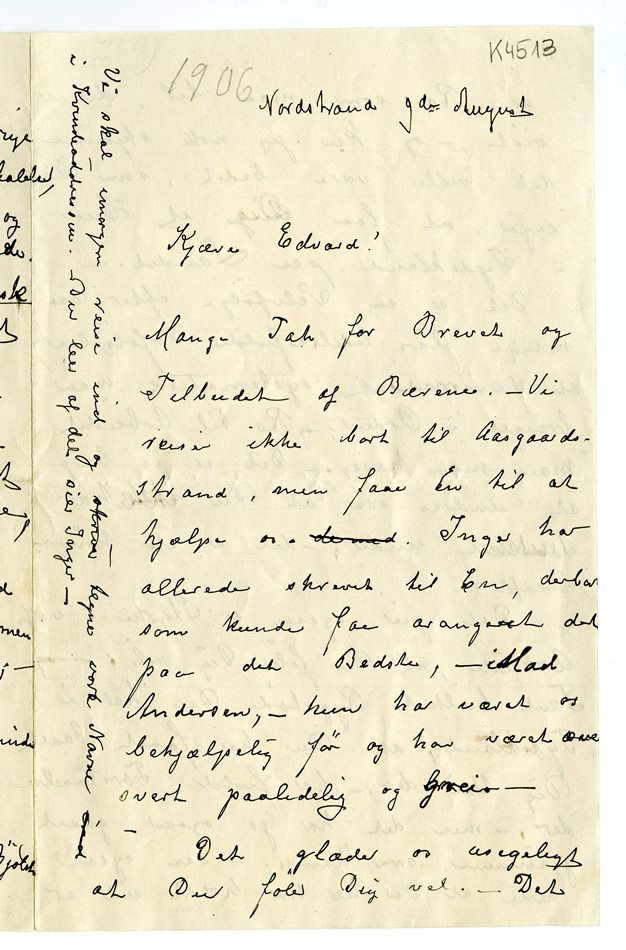 K4513
1906
Nordstrand 9de August
Kjære Edvard!
Mange Tak for Brevet og
Tilbudet af Bærene. – Vi
reiser ikke bort til Aasgaards-
strand, men faae En til at
hjælpe os. Inger har
allerede skrevet til En, derbor
som kunde faae arangeret det
paa det Bedste, – Mad
Andersen, – hun har været os
behjælpelig før og har været
svert paalidelig og Greio –
Det glæder os usigeligt
at Du føler Dig vel. – Det
Vi skal imorgen reise ind og skrive tegne vore Navne ind
i Kvindeaddressen. – Du leer af det sier Inger –